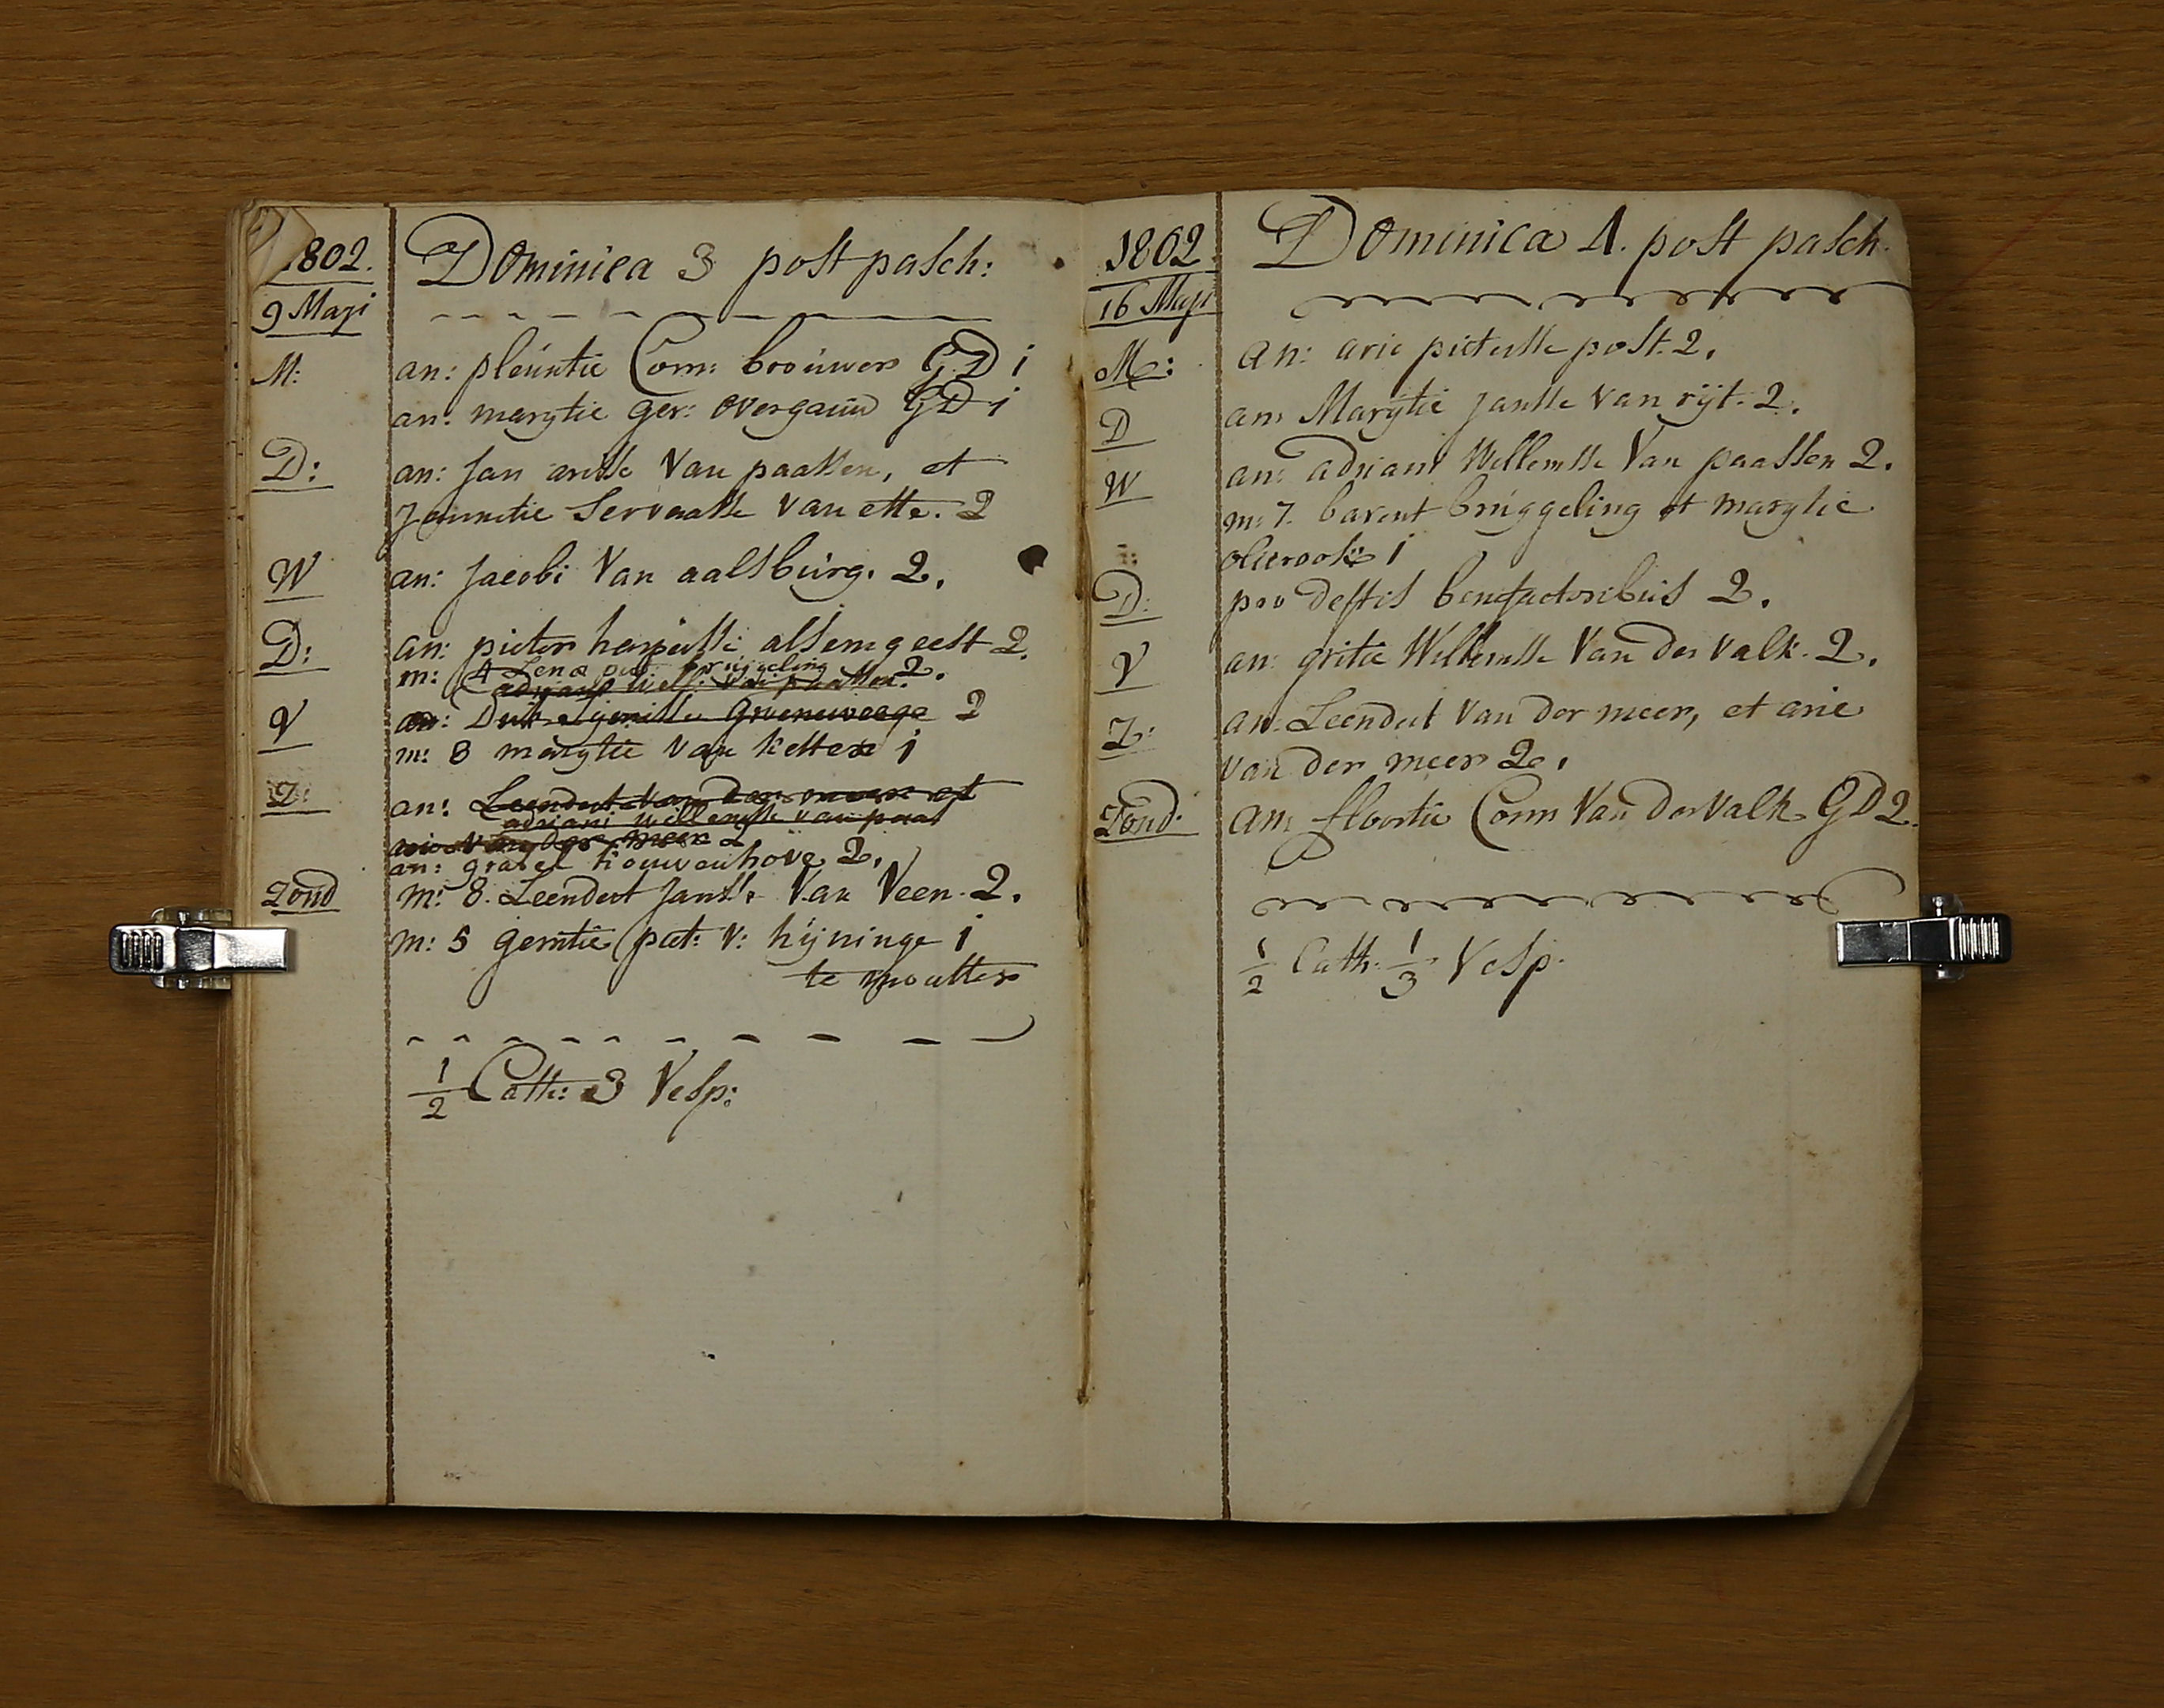 1802.
9 Mayi
Dominica 3 post pasch:
M: an: pleuntie Corn: brouwer GD i
an: marytie ger: overgauw GD i
D: an: Jan arisse Van paassen, et
Jannetie Servaasse van ette. 2
W an: Jacobi Van aalsburg. 2.
D: an: pieter herpertsse alsemgeest 2.
m: 4 Lena piet: bruggeling 2.
adriani Will: van paassen.
V an: Dirk Sijmisse Groeneweege 2
m: 8 marytie van ketter i
Z: an: Leendert Van der meer et
adriani willemsse van paas
arie Van der meer 2
an: gratel houwenhove 2.
Zond m: 8. Leendert Jansse Van Veen. 2.
m: 5 gerritie piet: v: hijninge i
te moutter
1/2 Cath: 3 Vesp:
1802.
16 Mayi
Dominica 4. post pasch.
M: An: arie pietersse post. 2.
D an: Marijtie Jansse Van rijt. 2.
W an: adriani Willemsse Van paassen 2.
m: 7. barent bruggeling et marytie
olierook i
D: pro deftis benefactoribus 2.
V an: gritie Willemsse Van der valk. 2.
Z: an: Leendert Van der meer, et arie
van der meer 2.
Zond. an: floortie Corn Van der Valk GD 2.
1/2 Cath. 1/3 Vesp.